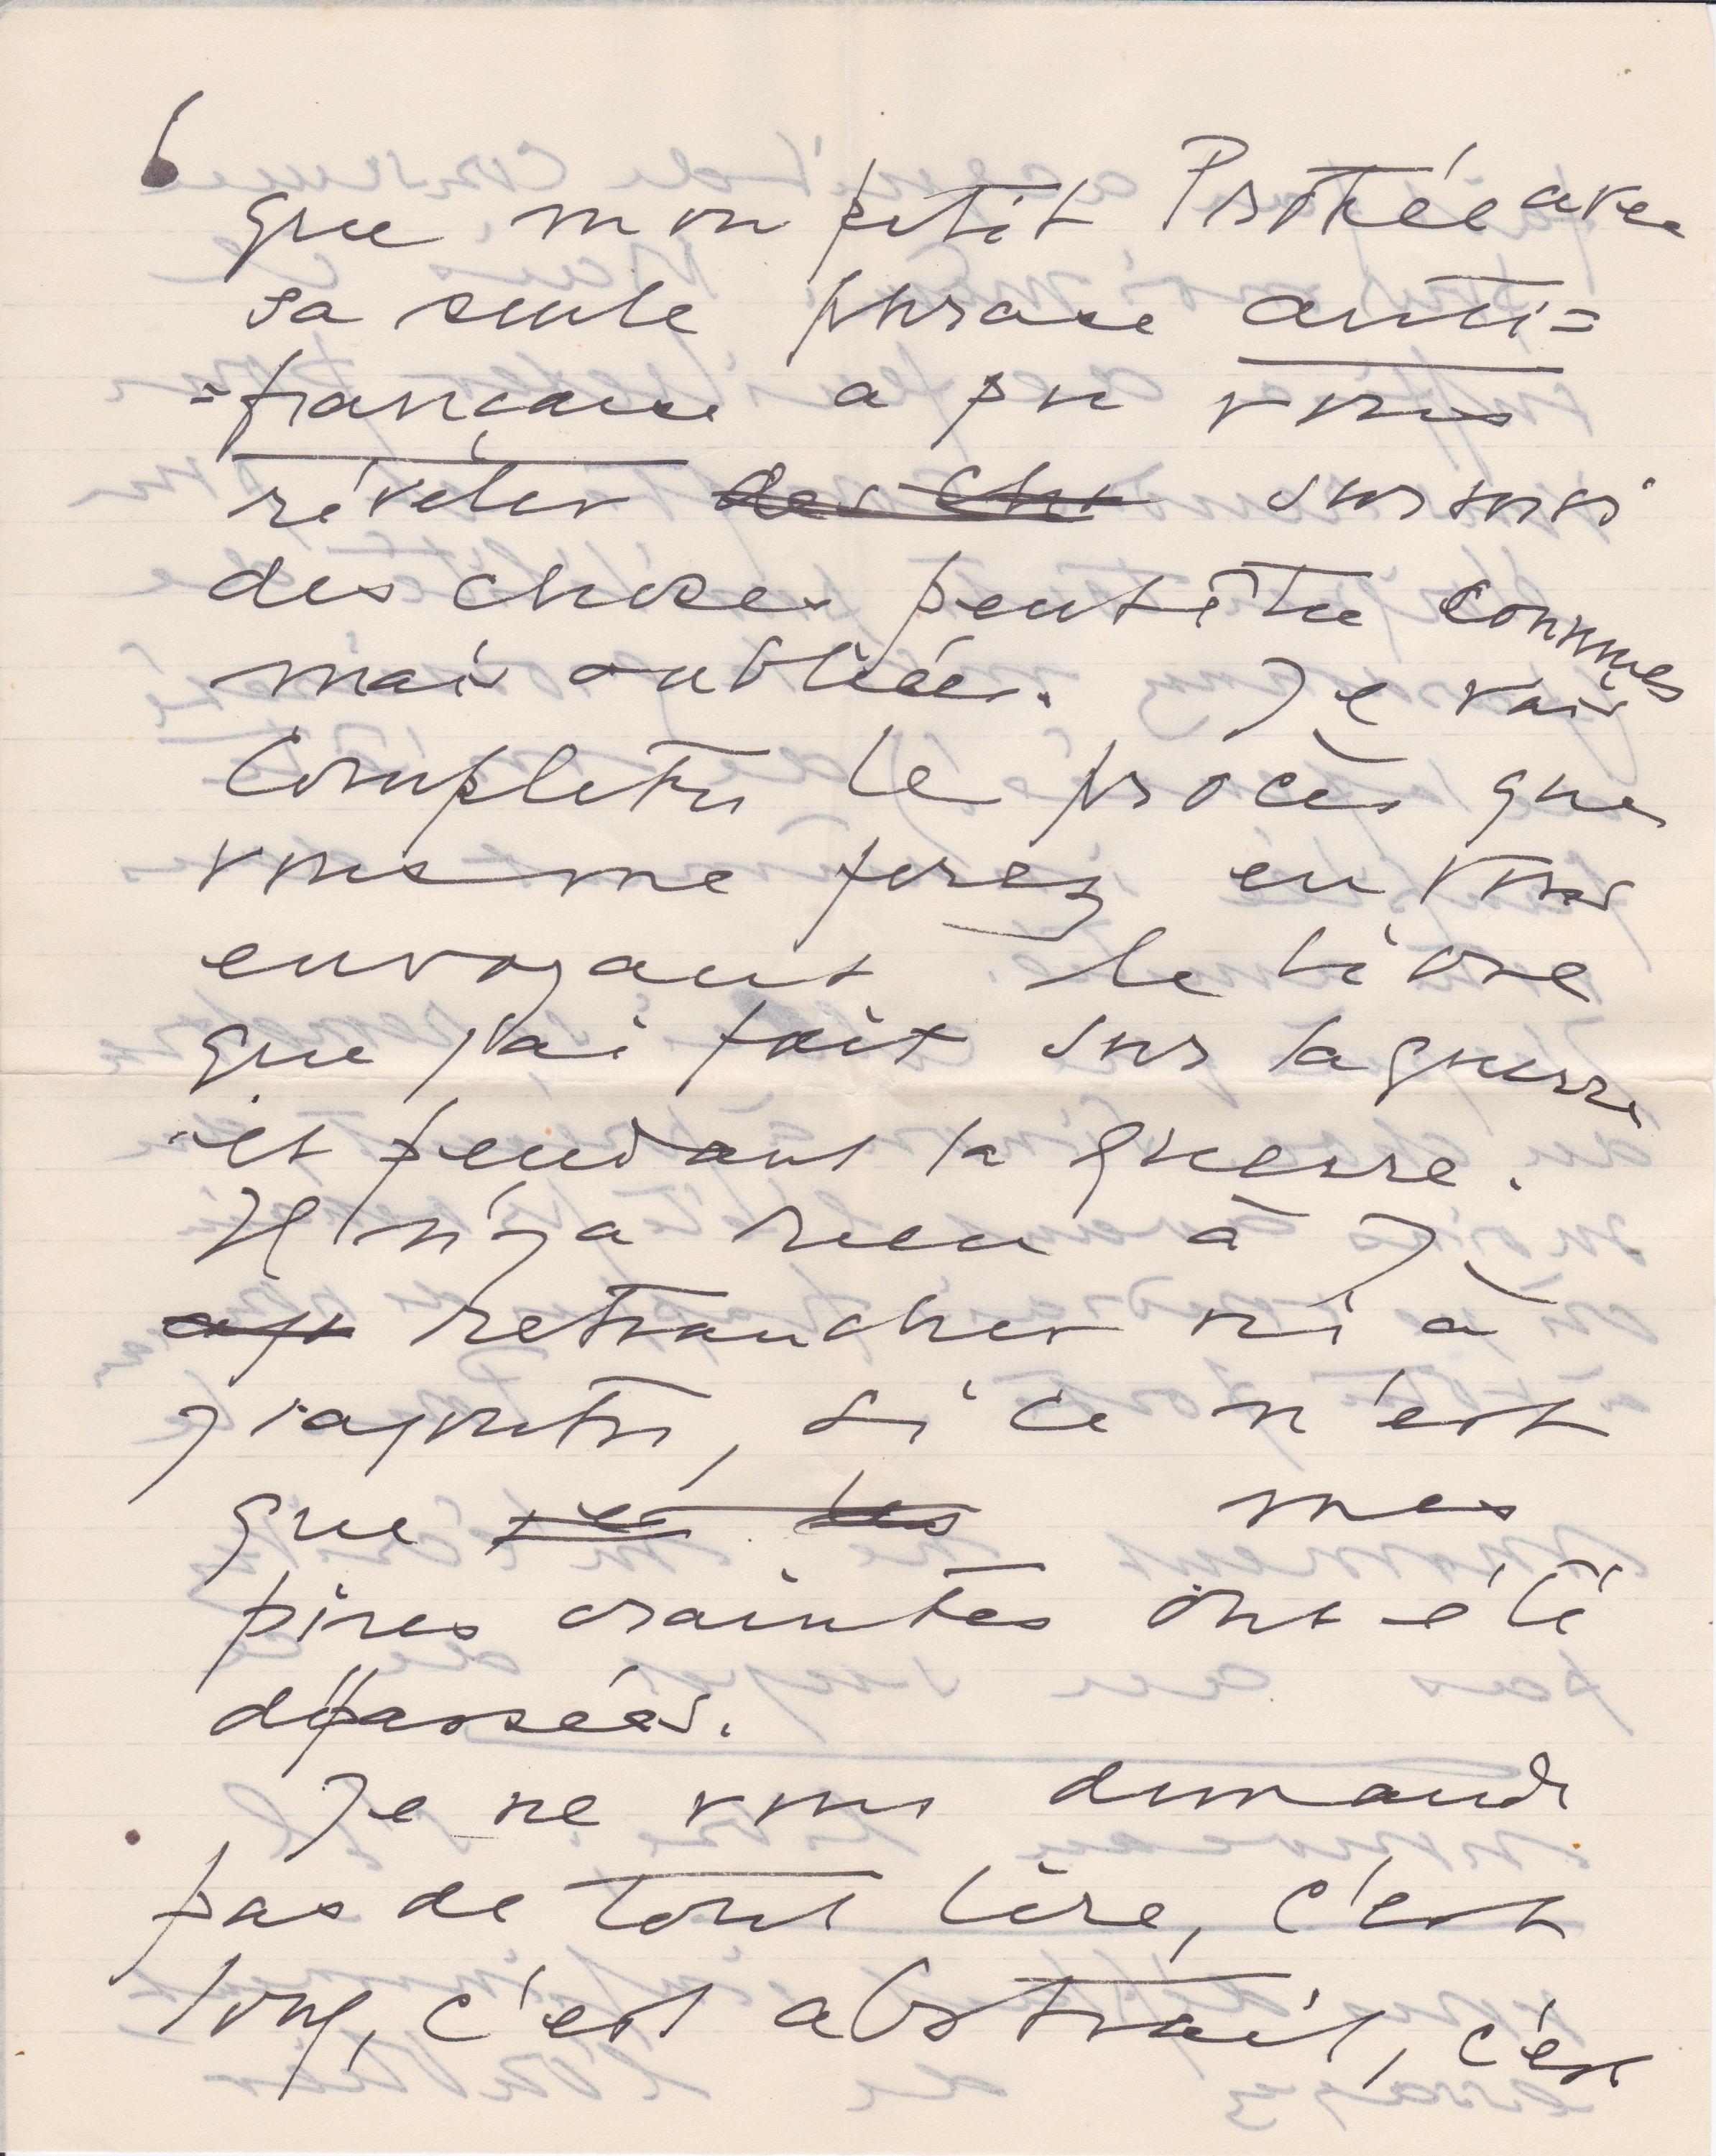 6
que mon petit Protée avec
sa seule phrase anti=
=française a pu vous
révéler des cho sur moi
des choses peut être connues
mais oubliées. Je vais
compléter le procès que
vous me ferez en vous
envoyant le livre
que j'ai fait sur la guerre
et pendant la guerre.
Il n'y a rien à y
ajo retrancher ni à
y rajouter, si ce n'est
que les mes
pires craintes ont été
dépassées.
Je ne vous demande
pas de tout lire, c'est
long, c'est abstrait, c'est